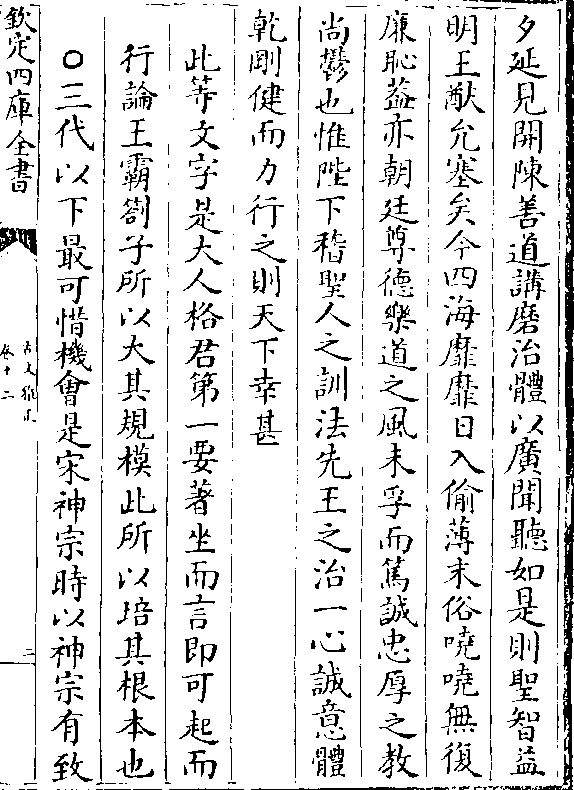 夕延見開陳善道講磨治體以廣聞聽如是則聖智益
明王猷允塞矣今四海靡靡日入偷薄末俗嘵嘵無復
廉恥葢亦朝廷尊德樂道之風未孚而篤誠忠厚之教
尚鬱也惟陛下稽聖人之訓法先王之治一心誠意體
乾剛健而力行之則天下幸甚
此等文字是大人格君第一要著坐而言即可起而
行論王霸劄子所以大其規模此所以培其根本也
○三代以下最可惜機會是宋神宗時以神宗有致
欽定四庫全書
古文雅正
卷十二
二